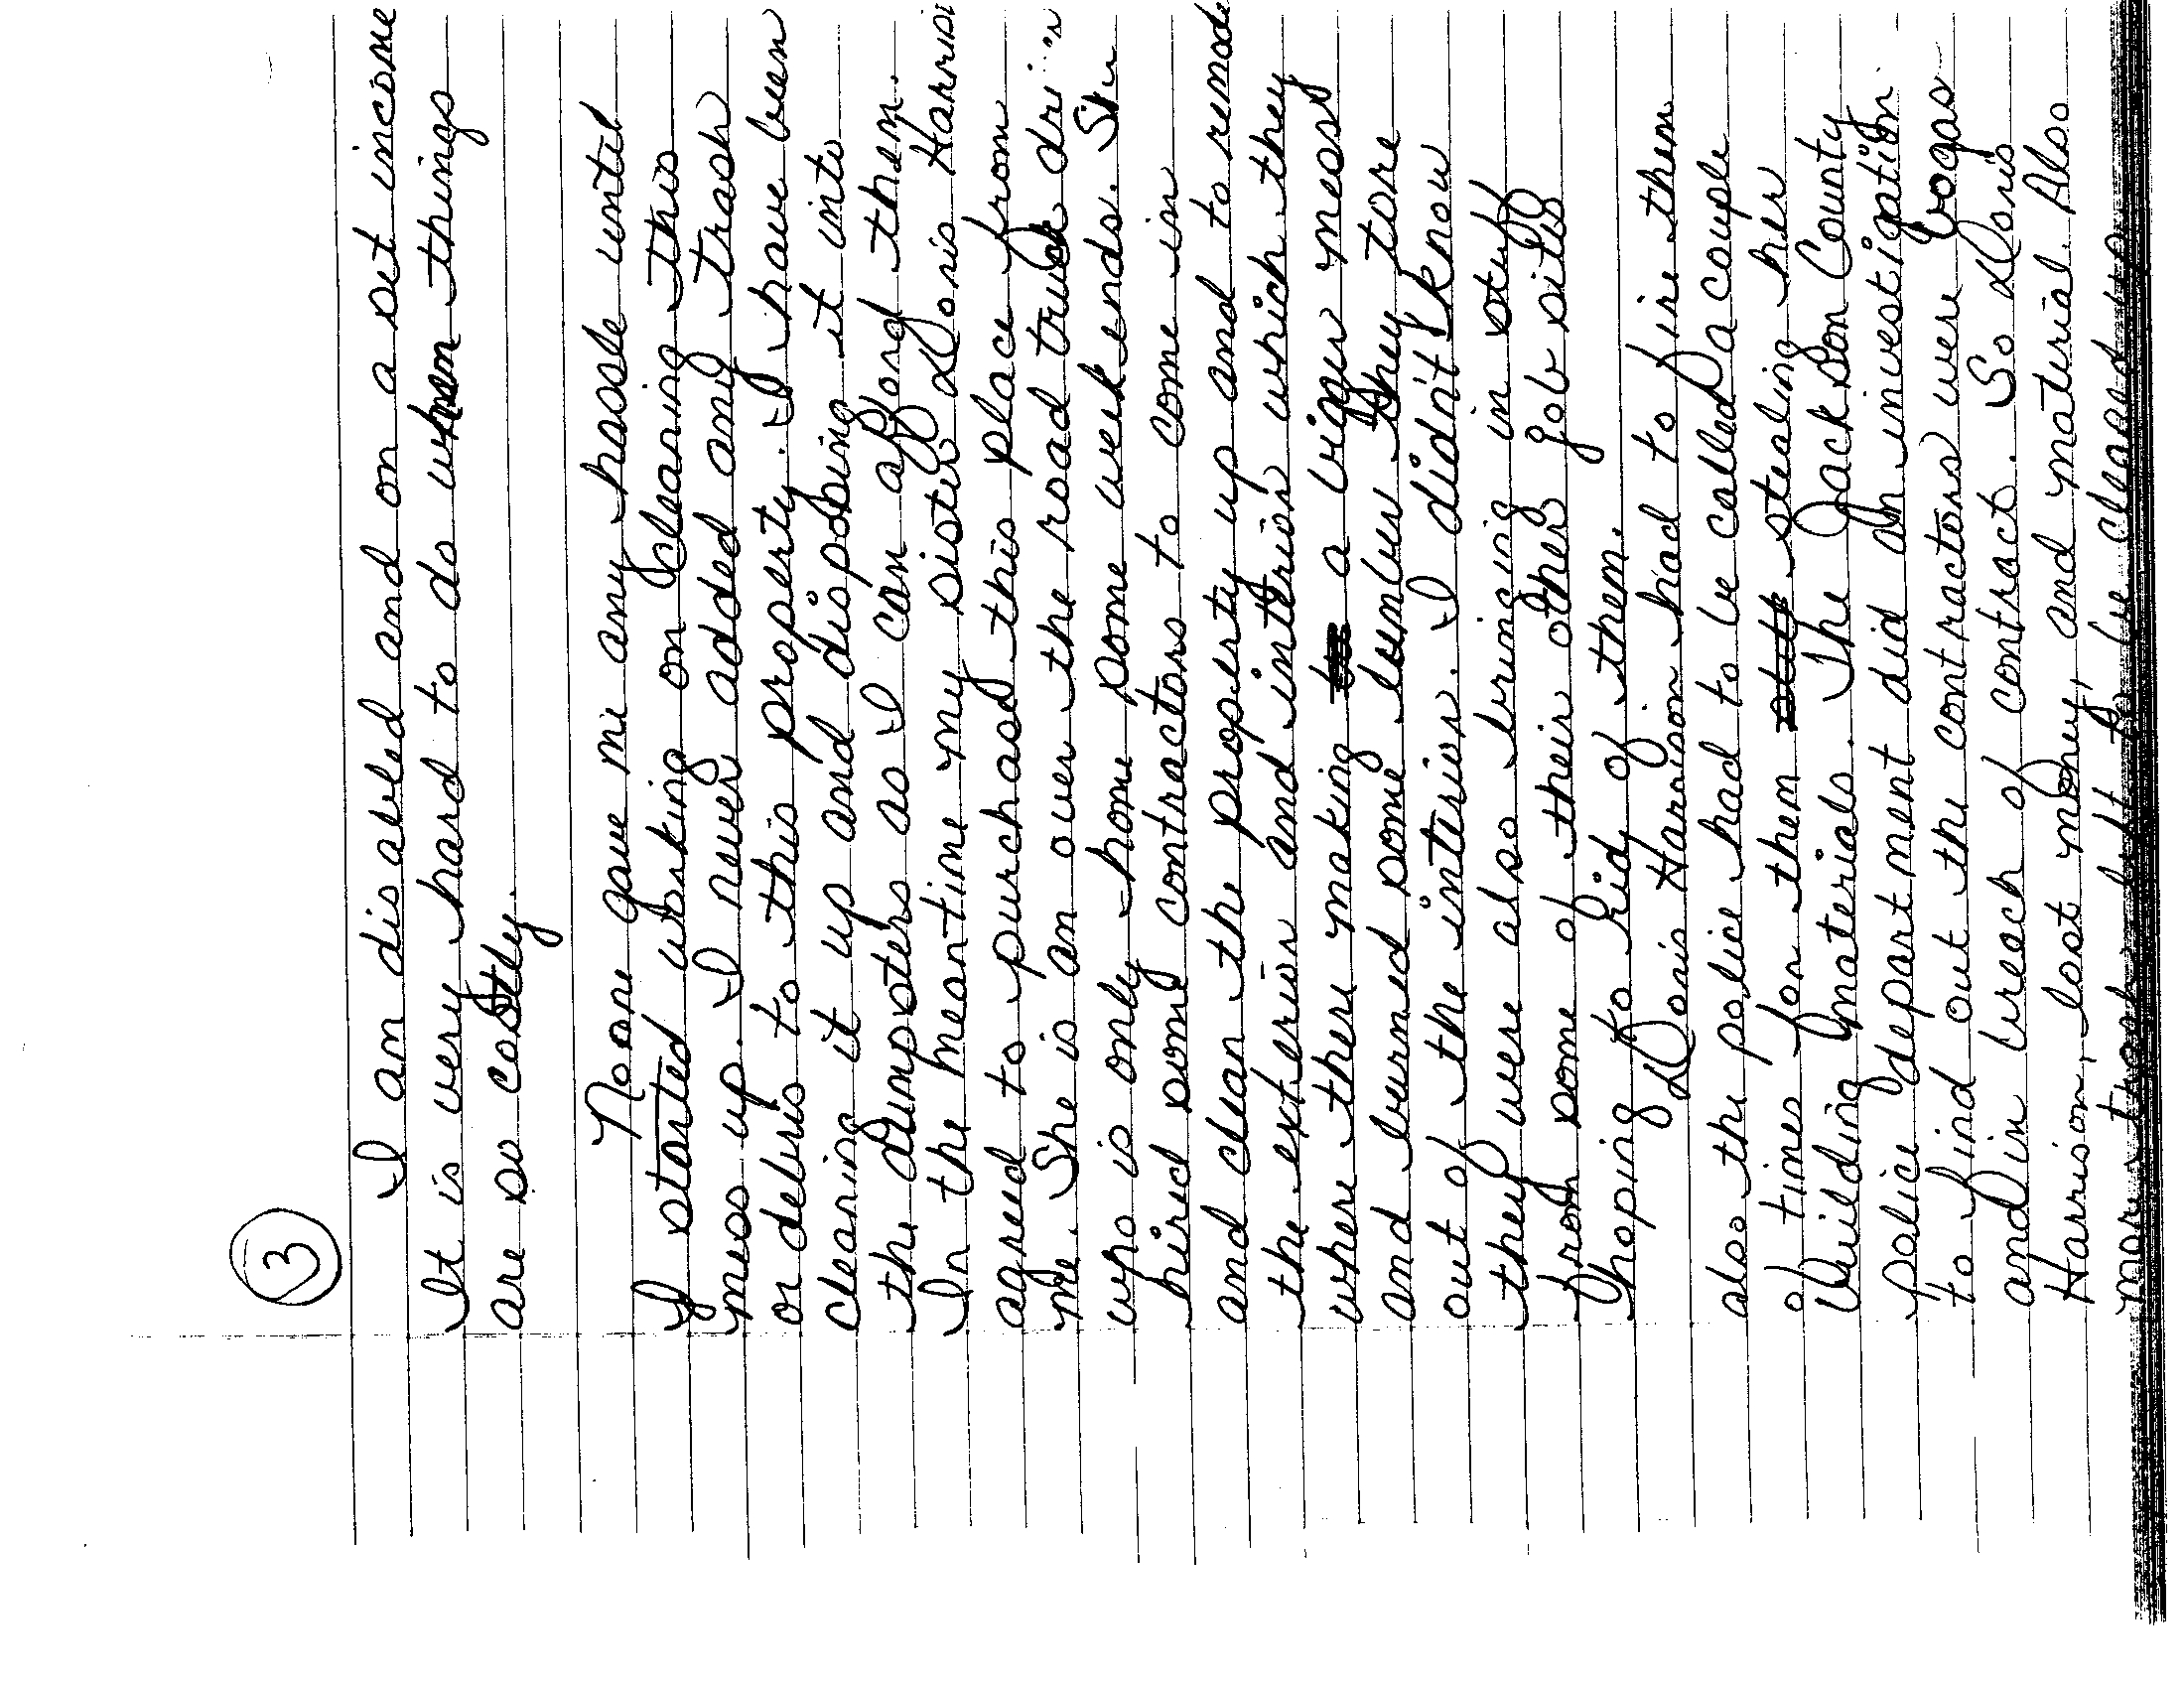 3
I am disabled and on a set income
It is very hard to do when things
are so costly.
Noone gave me any hassle until
I started working on cleaning this
mess up. I never added any trash
or debris to this property. I have been
cleaning it up and disposing it into
the dumpsters as I can afford them.
In the meantime my sister Doris Harriso
agreed to purchased this place from
me. She is an over the road truck dri
who is only home some weekends. She
hired some contractors to come in
and clean the property up and to remode
the exterior and interior which they
where there making a bigger mess
and burned some lumber they tore
out of the interior. I didn't know
they were also bringing in stuff
from some of their other job sites
hoping to rid of them.
Doris Harrison had to fire them
also the police had to be called a couple
of times for them stealing her
building materials. The Jackson County
police department did an investigation
to find out the contractors were bogas
and in breach of contract. So Doris
Harrison, lost money, and material. Also
more trash left to be cleaned up